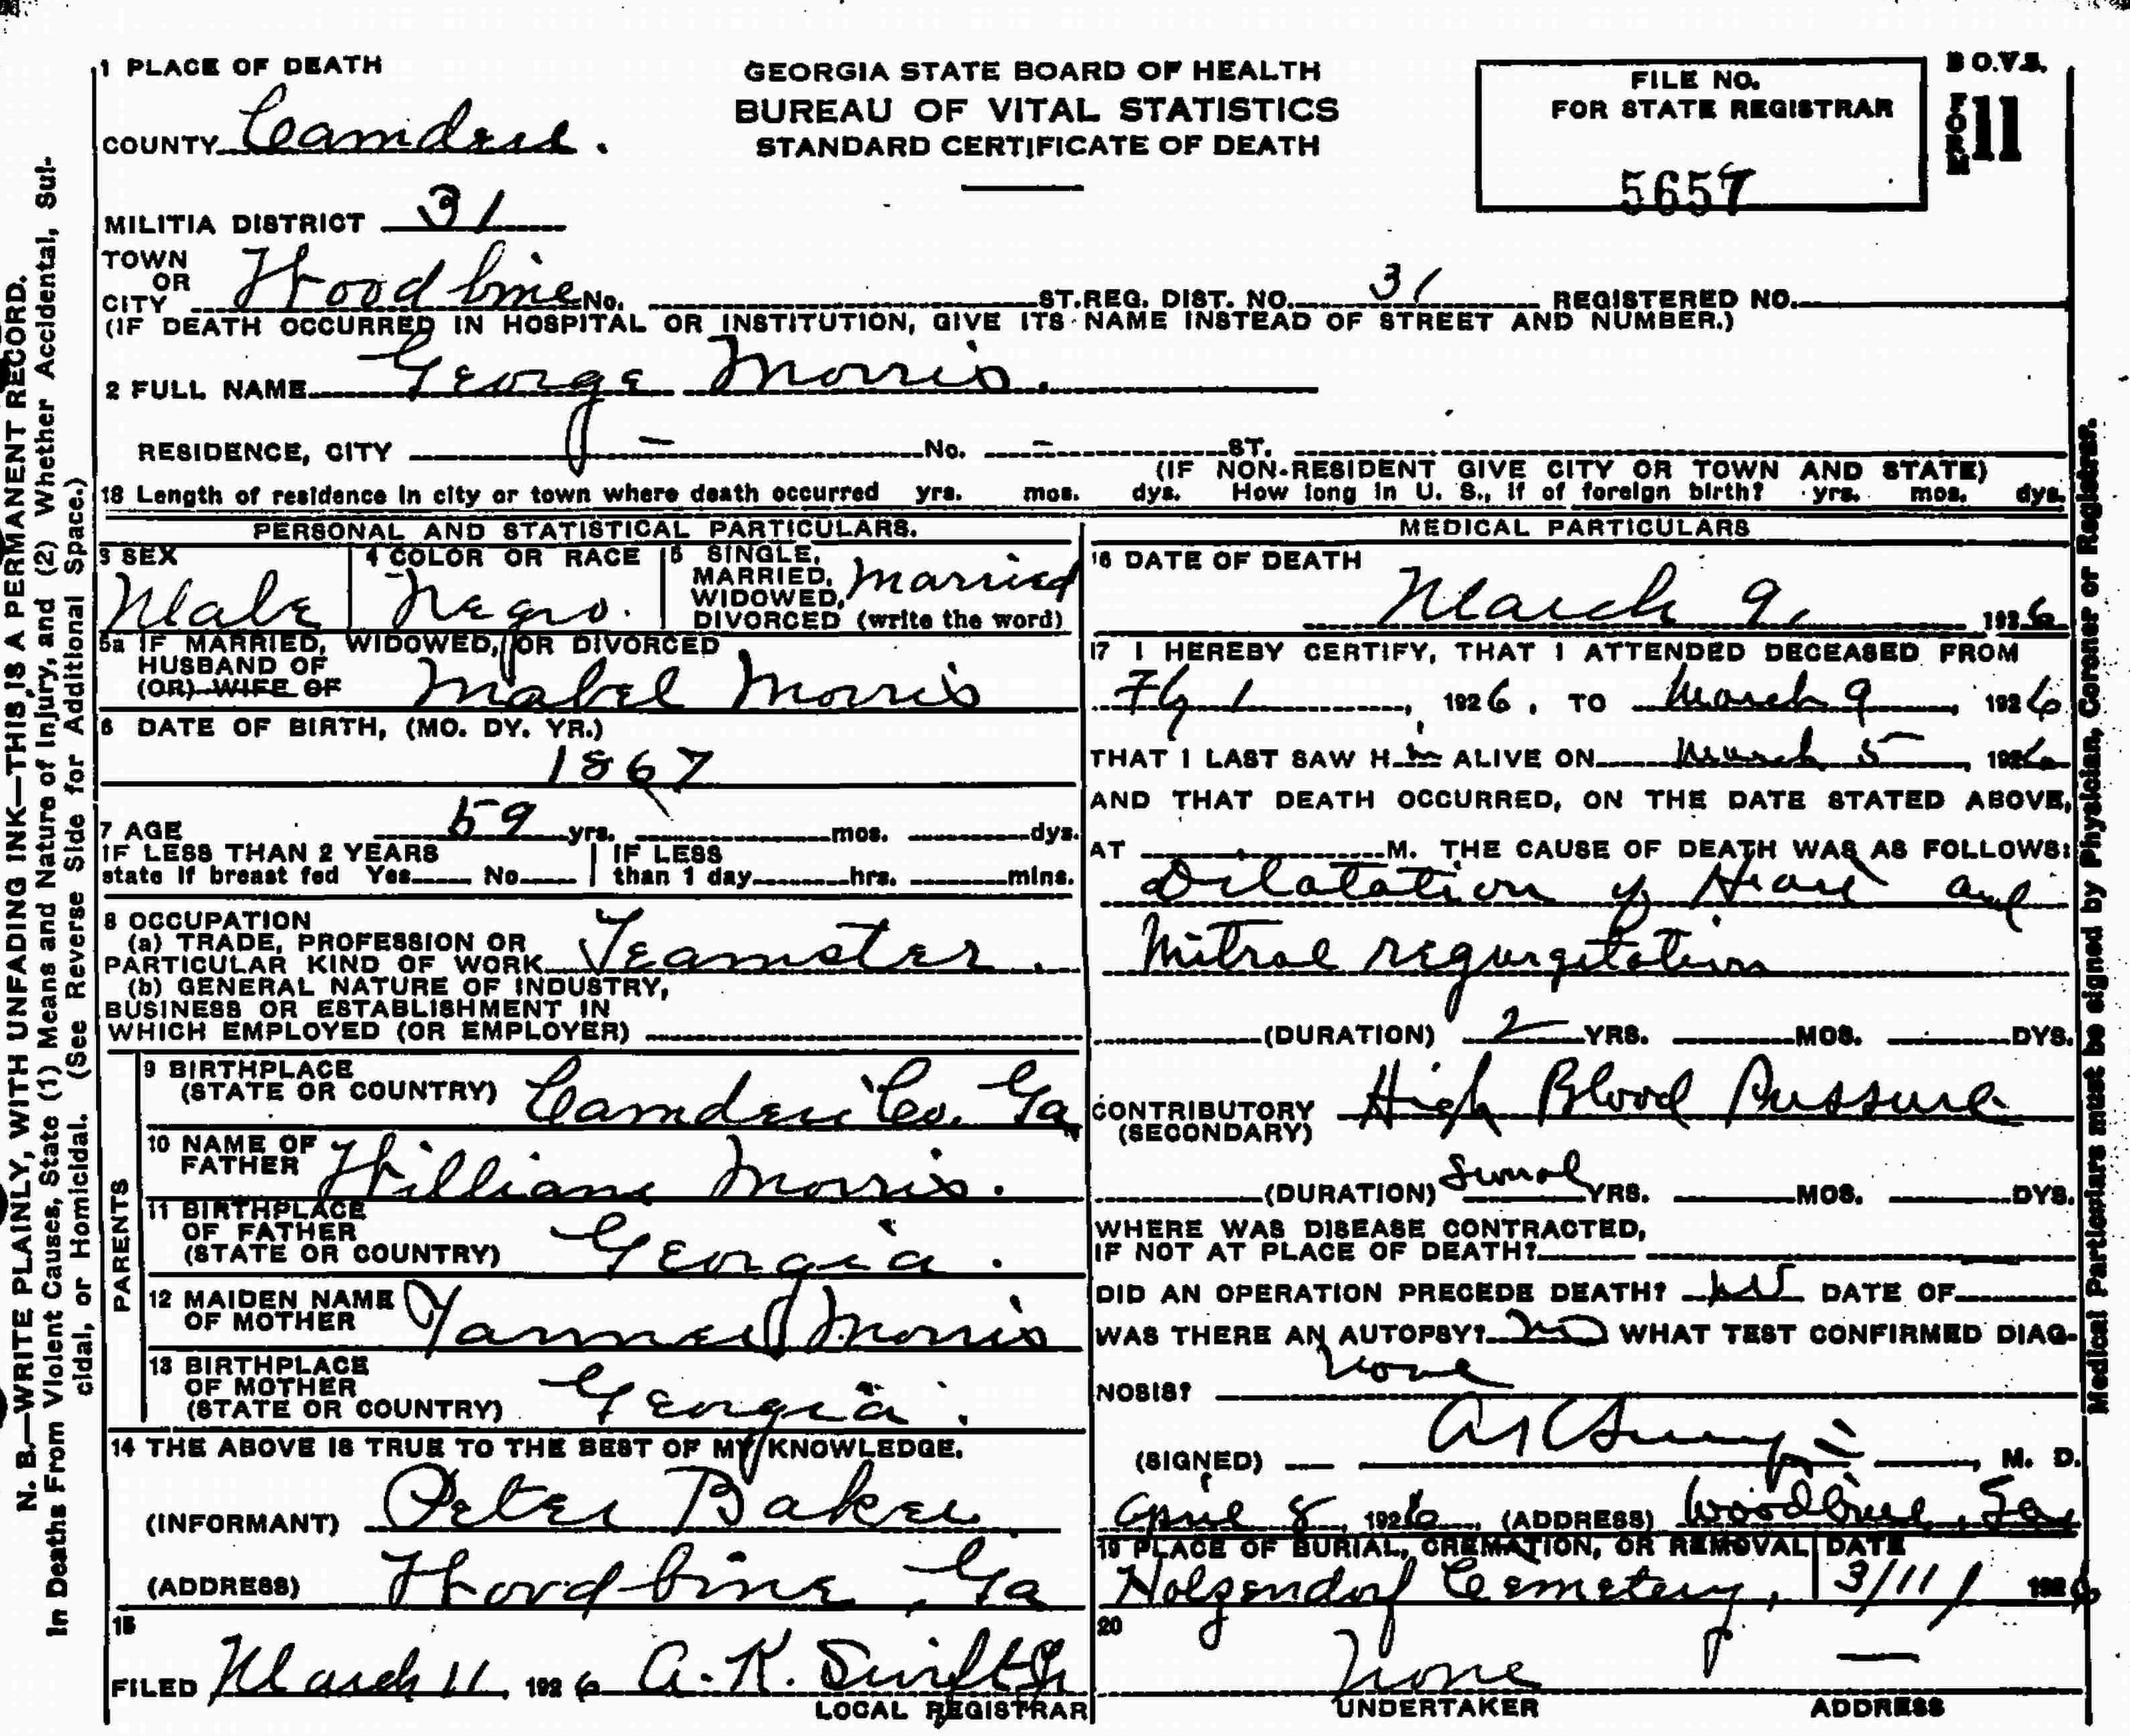 1 PLACE OF DEATH
COUNTY Camden.
GEORGIA STATE BOARD OF HEALTH
BUREAU OF VITAL STATISTICS
STANDARD CERTIFICATE OF DEATH
FILE NO.
FOR STATE REGISTRAR
5657
B O.V.S.
FORM 11
MILITIA DISTRICT 31
TOWN OR CITY Woodbine No. ST. REG. DIST. NO. 31 REGISTERED NO.
(IF DEATH OCCURRED IN HOSPITAL OR INSTITUTION, GIVE ITS NAME INSTEAD OF STREET AND NUMBER.)
2 FULL NAME George Morris.
RESIDENCE, CITY — No. — ST.
(IF NON-RESIDENT GIVE CITY OR TOWN AND STATE)
18 Length of residence in city or town where death occurred yrs. mos. dys. How long in U. S., if of foreign birth? yrs. mos. dys.
PERSONAL AND STATISTICAL PARTICULARS.
3 SEX Male
4 COLOR OR RACE Negro.
5 SINGLE, MARRIED, WIDOWED, DIVORCED (write the word) Married
5a IF MARRIED, WIDOWED, OR DIVORCED
HUSBAND OF
(OR) WIFE OF Mabel Morris
6 DATE OF BIRTH, (MO. DY. YR.)
1867
7 AGE 59 yrs. mos. dys.
IF LESS THAN 2 YEARS
state if breast fed Yes No
IF LESS
than 1 day hrs. mins.
8 OCCUPATION
(a) TRADE, PROFESSION OR
PARTICULAR KIND OF WORK Teamster.
(b) GENERAL NATURE OF INDUSTRY,
BUSINESS OR ESTABLISHMENT IN
WHICH EMPLOYED (OR EMPLOYER)
PARENTS
9 BIRTHPLACE
(STATE OR COUNTRY) Camden Co. Ga
10 NAME OF
FATHER William Morris.
11 BIRTHPLACE
OF FATHER
(STATE OR COUNTRY) Georgia.
12 MAIDEN NAME
OF MOTHER Morris
13 BIRTHPLACE
OF MOTHER
(STATE OR COUNTRY) Georgia.
14 THE ABOVE IS TRUE TO THE BEST OF MY KNOWLEDGE.
(INFORMANT) Peter Baker
(ADDRESS) Woodbine, Ga
15
FILED March 11, 1926 A. K. Swift Jr
LOCAL REGISTRAR
MEDICAL PARTICULARS
16 DATE OF DEATH
March 9, 1926
17 I HEREBY CERTIFY, THAT I ATTENDED DECEASED FROM
1, 1926, TO March 9, 1926
THAT I LAST SAW H im ALIVE ON March 5, 1926
AND THAT DEATH OCCURRED, ON THE DATE STATED ABOVE,
AT M. THE CAUSE OF DEATH WAS AS FOLLOWS:
Dilatation of Heart and
Mitral regurgitation
(DURATION) 2 YRS. MOS. DYS.
CONTRIBUTORY
(SECONDARY) High Blood Pressure
(DURATION) Several YRS. MOS. DYS.
WHERE WAS DISEASE CONTRACTED,
IF NOT AT PLACE OF DEATH?
DID AN OPERATION PRECEDE DEATH? no DATE OF
WAS THERE AN AUTOPSY? no WHAT TEST CONFIRMED DIAG-
NOSIS? none
(SIGNED) M. D.
April 8, 1926, (ADDRESS) Woodbine, Ga
19 PLACE OF BURIAL, CREMATION, OR REMOVAL DATE
Holzendorf Cemetery, 3/11/1926
20
None —
UNDERTAKER ADDRESS
N. B.—WRITE PLAINLY, WITH UNFADING INK—THIS IS A PERMANENT RECORD.
In Deaths From Violent Causes, State (1) Means and Nature of Injury, and (2) Whether Accidental, Sui-
cidal, or Homicidal. (See Reverse Side for Additional Space.)
Medical Particulars must be signed by Physician, Coroner or Registrar.